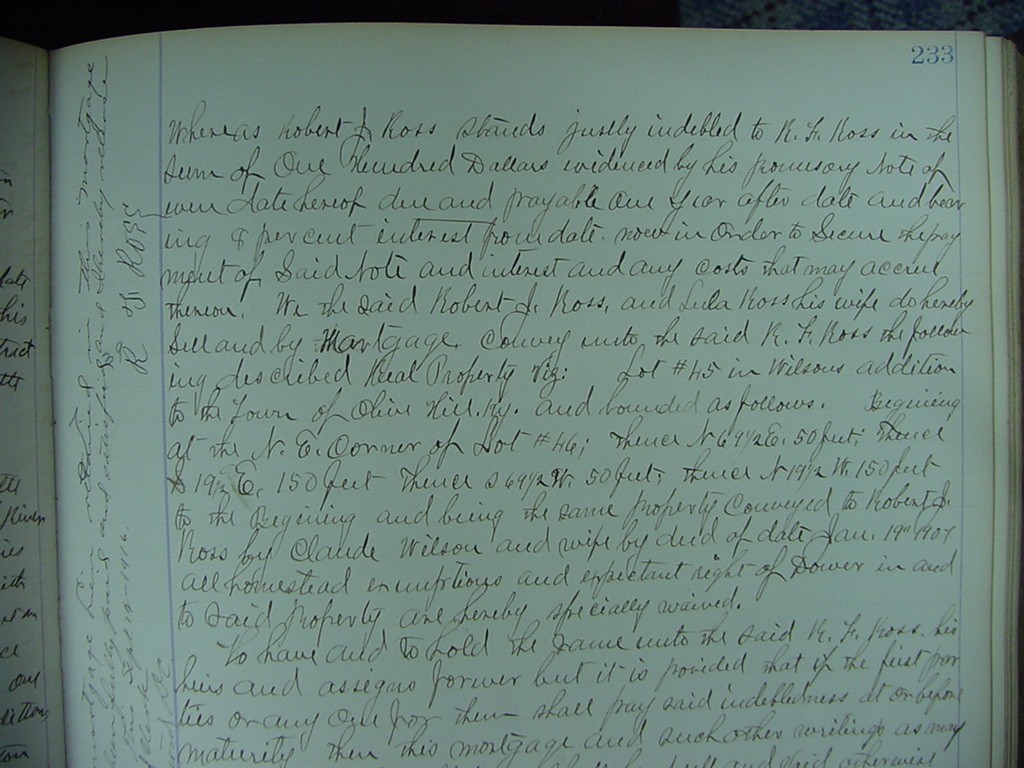 233
Whereas Robert J. Ross stands justly indebted to R. F. Ross in the
Sum of One Hundred Dollars evidenced by his promisory Note of
even date hereof due and payable One year after date and bear
ing 8 per cent interest from date. now in Order to Secure the pay
ment of Said Note and interest and any costs that may accrue
thereon. We the said Robert J. Ross, and Lula Ross his wife do hereby
Sell and by Mortgage Convey unto the said R. F. Ross the follow
ing described Real Property Viz: Lot #45 in Wilsons addition
to the Town of Olive Hill, Ky. and bounded as follows. Begining
at the N. E. Corner of Lot #46; Thence N 69½ E. 50 feet; Thence
S 19½ E. 150 feet Thence S 69½ W. 50 feet; thence N 19½ W. 150 feet
to the Begining and being the same property Conveyed to Robert J.
Ross by Claude Wilson and wife by deed of date Jan. 19" 1907
all homestead exemptions and expectant right of Dower in and
to said Property are hereby specially waived.
To have and to hold the same unto the said R. F. Ross his
heirs and assigns forever but it is provided that if the first par
ties or any One for them shall pay said indebtedness at or before
maturity then this mortgage and such other writings as may
otherwise
mortgage herein retained in this mortgage
being fully paid and satisfied and hereby release
this Sept 10-1910.
R F Ross
date
his
trict
River
ies
with
out
dition